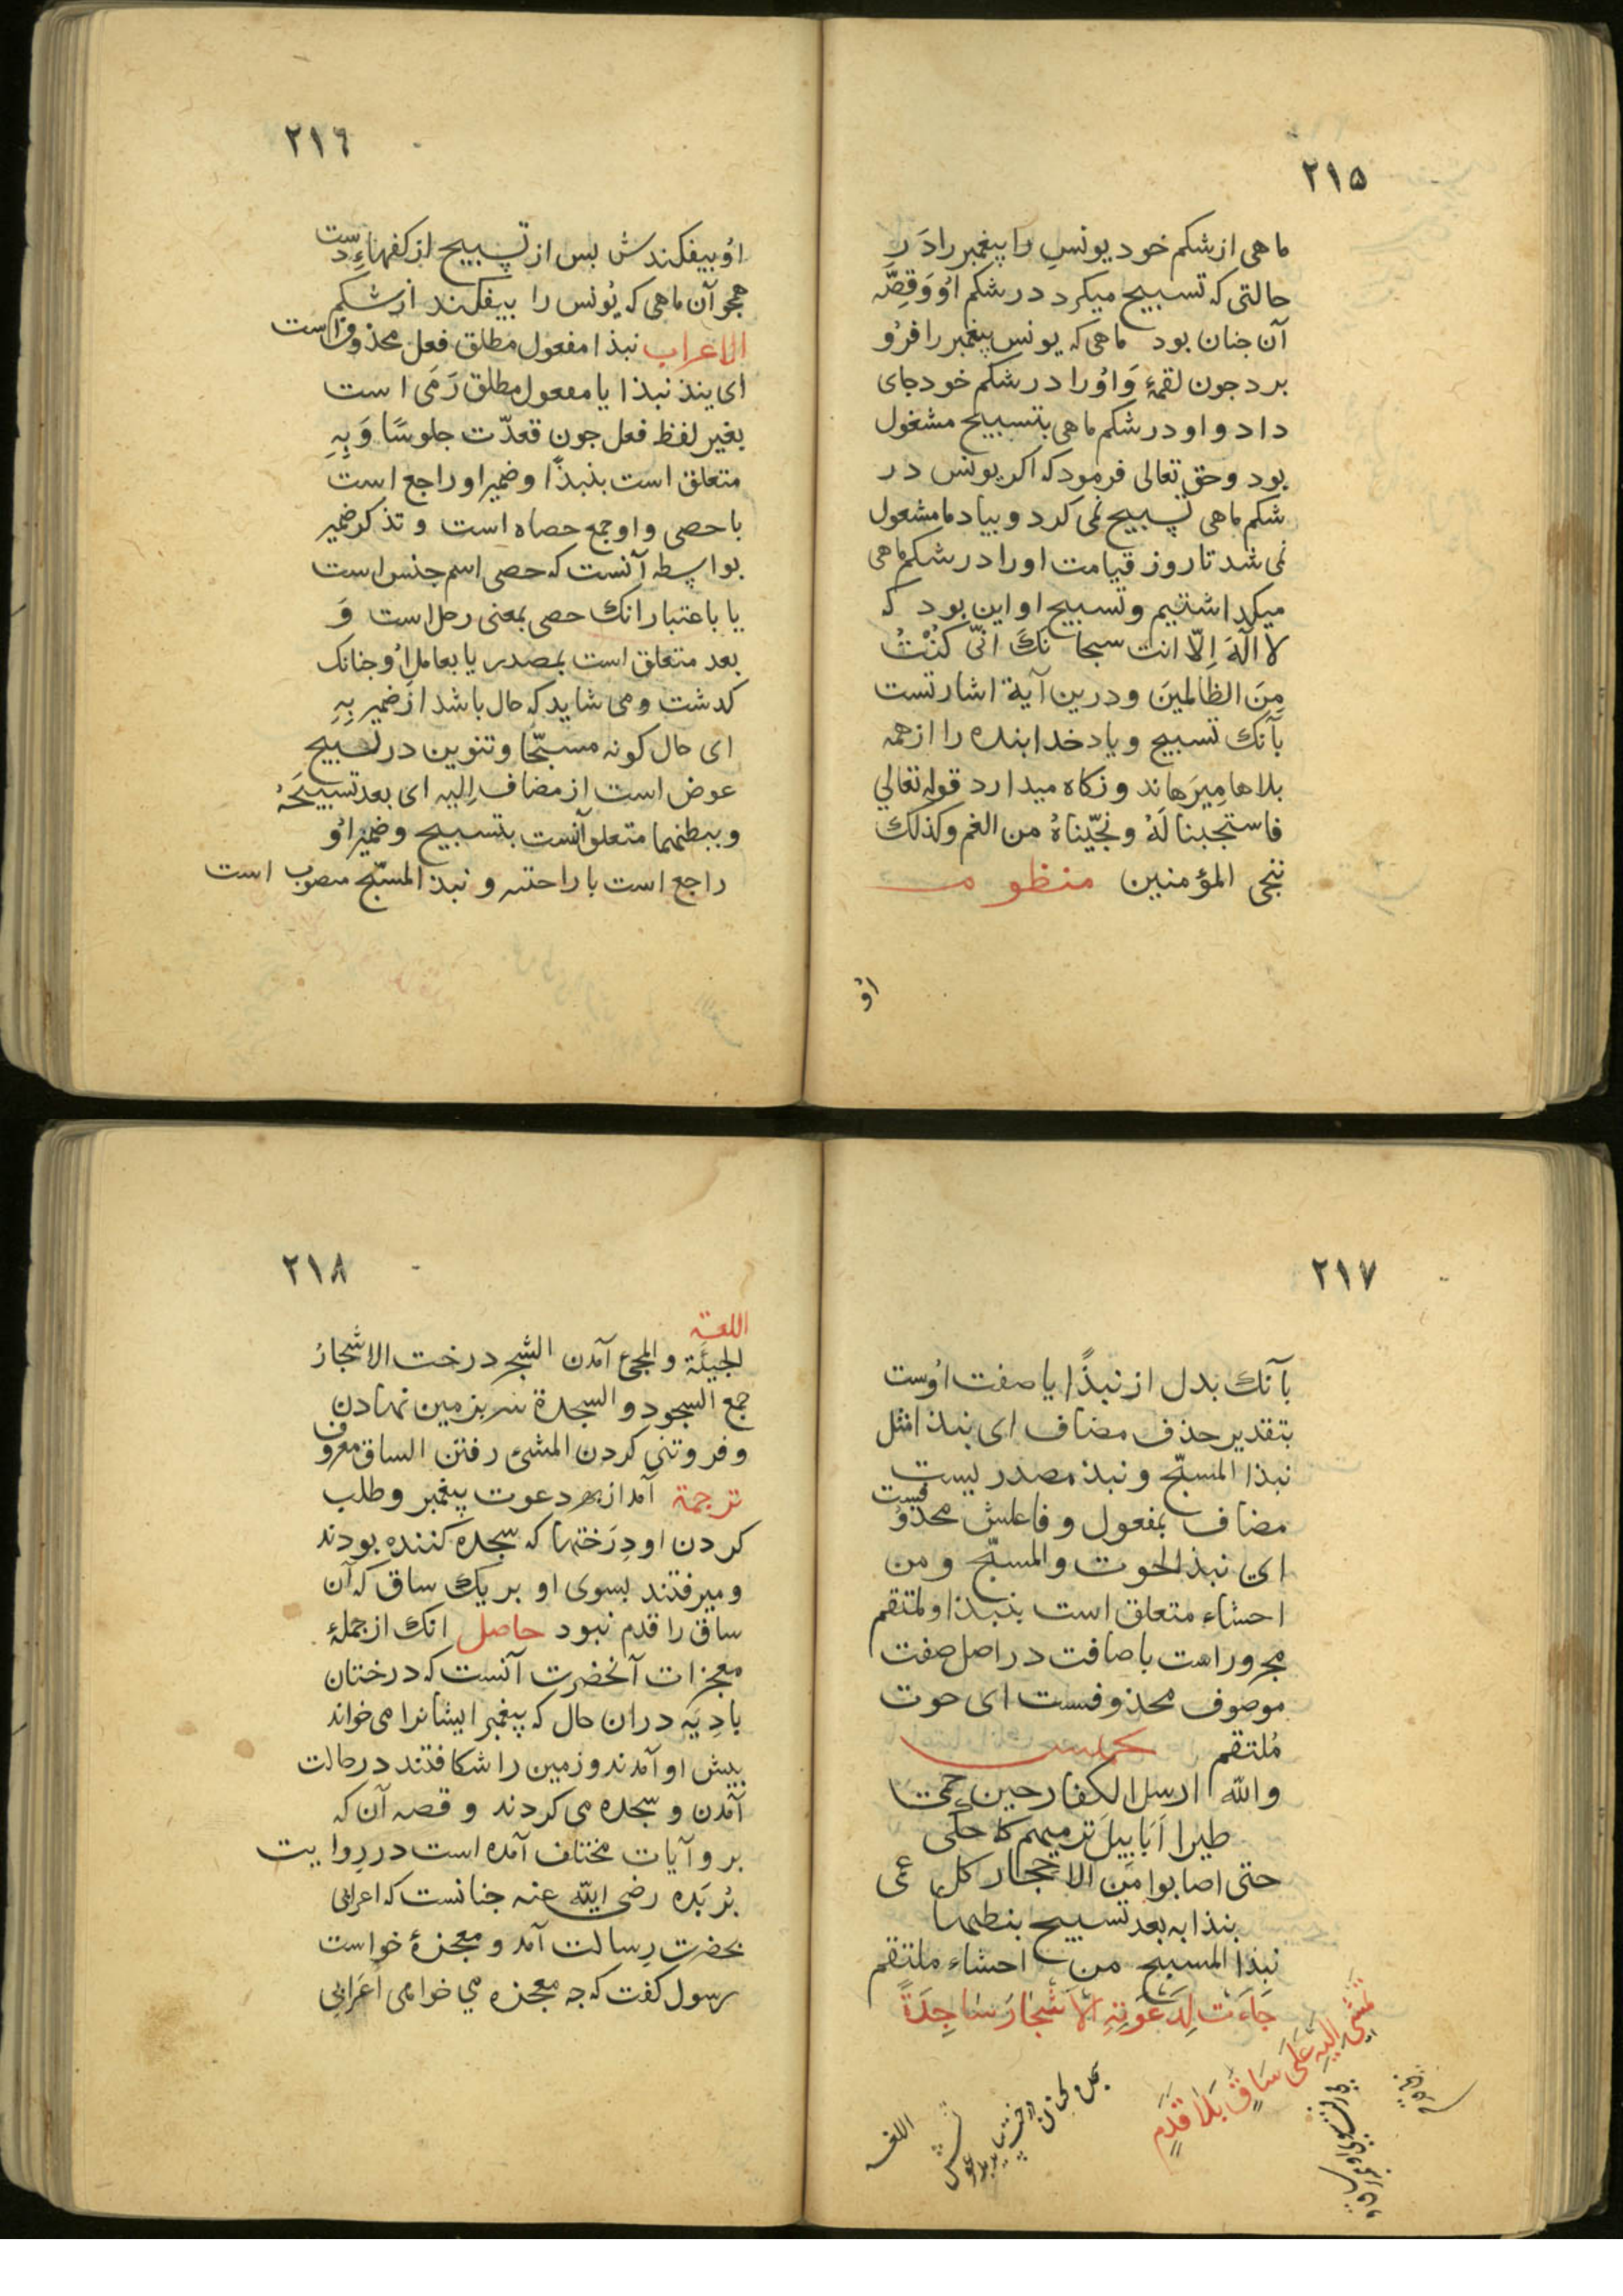 ٢١٥
ماهی از شکم خود یونس را پیغمبر را دَر
حالتی که تسبیح میکرد در شکم اُو وَ قِصَّه
آن جنان بود ماهی که یونس پیغمبر را فرُو
برد جون لقمۀ وَ اوُرا در شکم خود جای
داد و او در شکم ماهی بتسبیح مشغول
بود و حق تعالی فرمود که اکر یونس در
شکم ماهی تسبیح نمی کرد و بیاد ما مشعول
نمی شد تا روز قیامت او را در شکم ماهی
میکداشتیم و تسبیح او این بود که
لا الَهَ اِلّا انت سبحانكَ انّی کُنْتُ
مِنَ الظالمینَ و درین آیة اشارتست
بآنك تسبیح و یاد خدا بنده را از همه
بلاها مِیرَهاند و نکاه میدارد قوله تعالي
فاستجبنا لَهُ و نجّیناهُ من الغم و کذلك
ننجی المؤمنین منظومـ
اوُ
٢١٦
اوُ بیفکندش بس از تسبیح از کفهاءِ دست
همجو آن ماهی که یُونس را بیفکند از شکم
الاعراب نبذا مفعول مطلق فعل محذوف است
ای ینبذ نبذا یا مفعول مطلق رَمَی است
بغیر لفظ فعل جون قعدّت جلوسًا وَ بِهِ
متعلق است بنبذًا و ضمیر او راجع است
با حصی و او جمع حصاه است و تذکر ضمیر
بواسطه آنست که حصی اسم جنس است
یا باعتبار انك حصی بمعنی رحل است وَ
بعد متعلق است بمصدر یا بعامل اوُ جنانک
کدشت و می شاید که حال باشد از ضمیر بِهِ
ای حال کونه مسبّحًا و تنوین در تسبیح
عوض است از مضاف اِلیه ای بعد تسبیحَهُ
و ببطنهما متعلق آنست بتسبیح و ضمیر اوُ
راجع است با راحتیه و نبذ المسبّح منصوب است
٢١٧
بآنك بدل از نبذًا یا صفت اوُست
بتقدیر حذف مضاف ای نبذا مثل
نبذا المسبّح و نبذ مصدر یست
مضاف بمفعول و فاعلش محذوُفیست
اي نبذ الحوت و المسبّح و من
احشاء متعلق است بنبذا و لمتقم
مجرور است باضافت در اصل صفت
موصوف محذوفست ای حوت
مُلتقم تخمیس
والله ارسل الکفار حین حمی
طیرا اَبَابِیلَ ترمیهم کما حکی
حتی اصابوا مَن الاحجار کل عمی
نبذا به بعد تسبیح ببطنهما
نَبْذَ المسبح من احشاء ملتقم
جَاءَتْ لِدَعْوَتِهِ الْاَشْجَارُ سَاجِدَةً
تَمْشِی اِلَیْهِ عَلَی سَاقٍ بَلَا قَدَمٍ
اللغه
٢١٨
اللغة
الجیئَة و المجئ آمدن الشجر درخت الاشجارُ
جمع السجود و السجدة سر بزمین نهادن
و فروتنی کردن المشیُ رفتن الساق معروف
ترجمة آمد از بهر دعوت پیغمبر و طلب
کردن او دِرَختها که سجده کننده بودند
و میرفتند بسوی او بر یك ساق که آن
ساق را قدم نبود حاصل انك از جملۀ
معجزات آنخضرت آنست که درختان
بادِیَه دران حال که پیغمبر ایشانرا می خواند
بیش او آمدند و زمین را شکافتند در حالت
آمدن و سجده می کردند و قصه آن که
بر و آیات مختلف آمده است در روایت
بُریَده رضی الله عنه جنانست که اعرابی
بحضرت رِسالت آمد و معجزۀ خواست
رسول کفت که جه معجزه می خواهی اَعرَابی